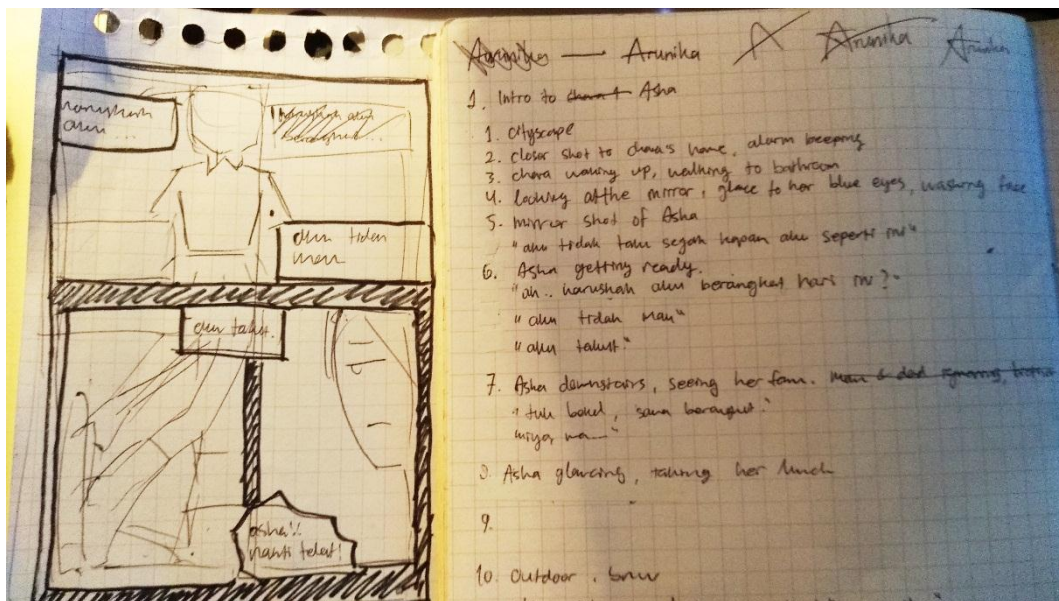 haruskah
aku ...
haruskah aku
berangkat...
aku tidak
mau
aku takut.
asha!!
nanti telat!
Arunika — Arunika A Arunika Arunika
1. Intro to chara 1 Asha
1. cityscape
2. closer shot to chara's home, alarm beeping
3. chara waking up, walking to bathroom
4. looking at the mirror, glace to her blue eyes, washing face
5. mirror shot of Asha
"aku tidak tahu sejak kapan aku seperti ini"
6. Asha getting ready.
"ah.. haruskah aku berangkat hari ini?"
"aku tidak mau"
"aku takut."
7. Asha downstairs, seeing her fam. mom & dad ignoring,
"tuh bekel, sana berangkat."
8. Asha glancing, taking her lunch
9.
10. Outdoor.